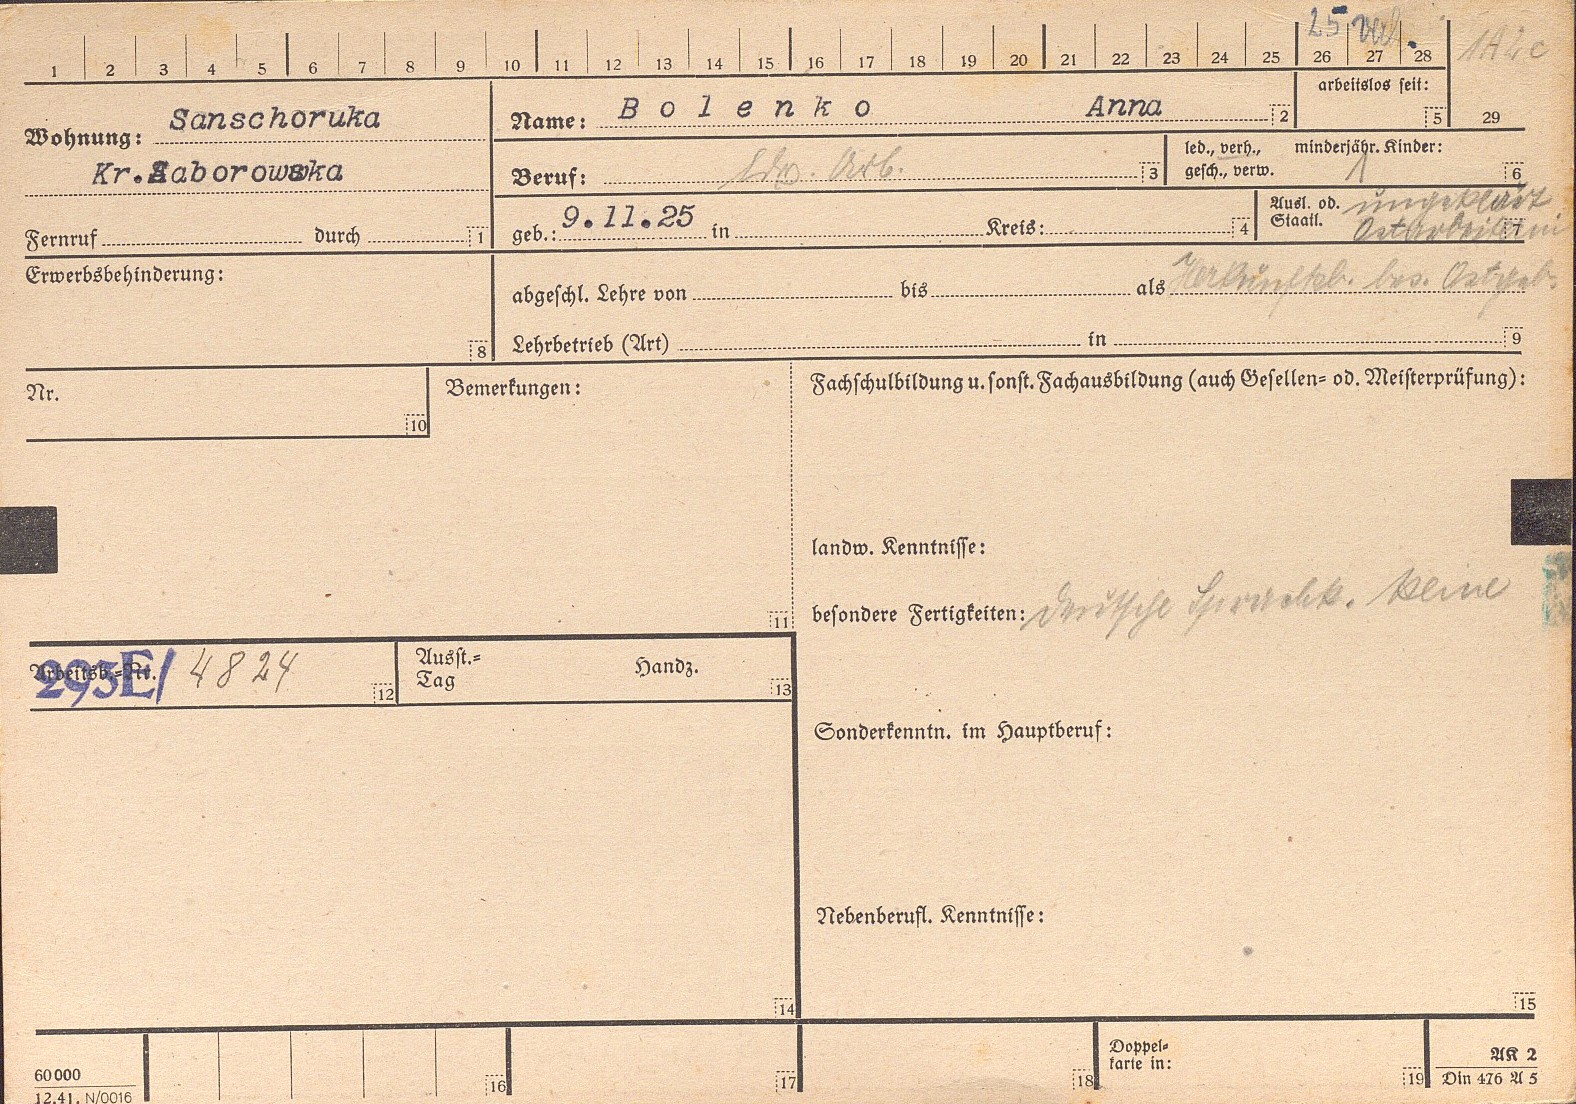 25 verh.
1 2 3 4 5 6 7 8 9 10 11 12 13 14 15 16 17 18 19 20 21 22 23 24 25 26 27 28 1A2c
Wohnung: Sanschoruka
Kr.Saborowska
Fernruf durch 1
Name: Bolenko Anna 2
arbeitslos seit: 5
29
Beruf: Ldw. Arb. 3
led., verh., minderjähr. Kinder:
gesch., verw. 1 6
geb.: 9.11.25 in Kreis: 4
Ausl. od. ungeklärt
Staatl. Ostarbeiterin 7
Erwerbsbehinderung:
8
abgeschl. Lehre von bis als Herkunftsb. bes. Ostgeb.
Lehrbetrieb (Art) in 9
Nr.
10
Bemerkungen:
11
Fachschulbildung u. sonst. Fachausbildung (auch Gesellen- od. Meisterprüfung):
landw. Kenntnisse:
besondere Fertigkeiten: deutsche Sprachk. keine
Arbeitsb.-Nr. 295E/ 4824 12
Ausst.- Handz.
Tag 13
Sonderkenntn. im Hauptberuf:
Nebenberufl. Kenntnisse:
14
15
60000
12.41. N/0016
16
17
18
Doppel-
karte in:
19
AK 2
Din 476 A 5